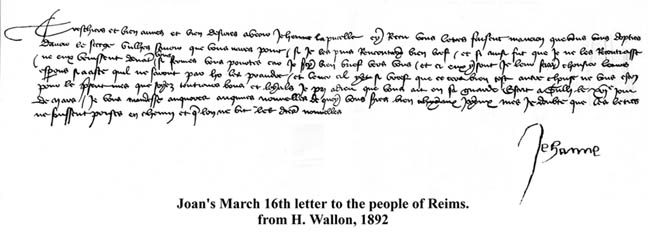 Tres chiers et bien aimes et bien desiries a veoir Jehenne la pucelle ey Receu vous letres faisent mancion que vous vous dopties
davoir le sciege Vulhes savoir que vous nares point si je les puis Rencontrer bien bref et si ainsi fut que je ne les Rencontrasse
ne eux venissent devant vous si fermes vous pourtes car je serey bien bref vers vous et ci eux y sont je leur feray chousier leurs
esperons si a aste quil ne saront pas ho les prandre et lever cil y est si bref que ce cera bien tost autre chouse ne vous escri
pour le present mes que soyez toutjours bons et loyals je pri a dieu que vous ait en sa guarde Escrit a Sulli le xvi jour
de mars Je vous mandesse anquores augunes nouvelles de quoy vous series bien choyaux mes je doubte que les letres
ne feussent prises en chemin et que lon ne vit les dites nouvelles
Jehanne
Joan's March 16th letter to the people of Reims.
from H. Wallon, 1892